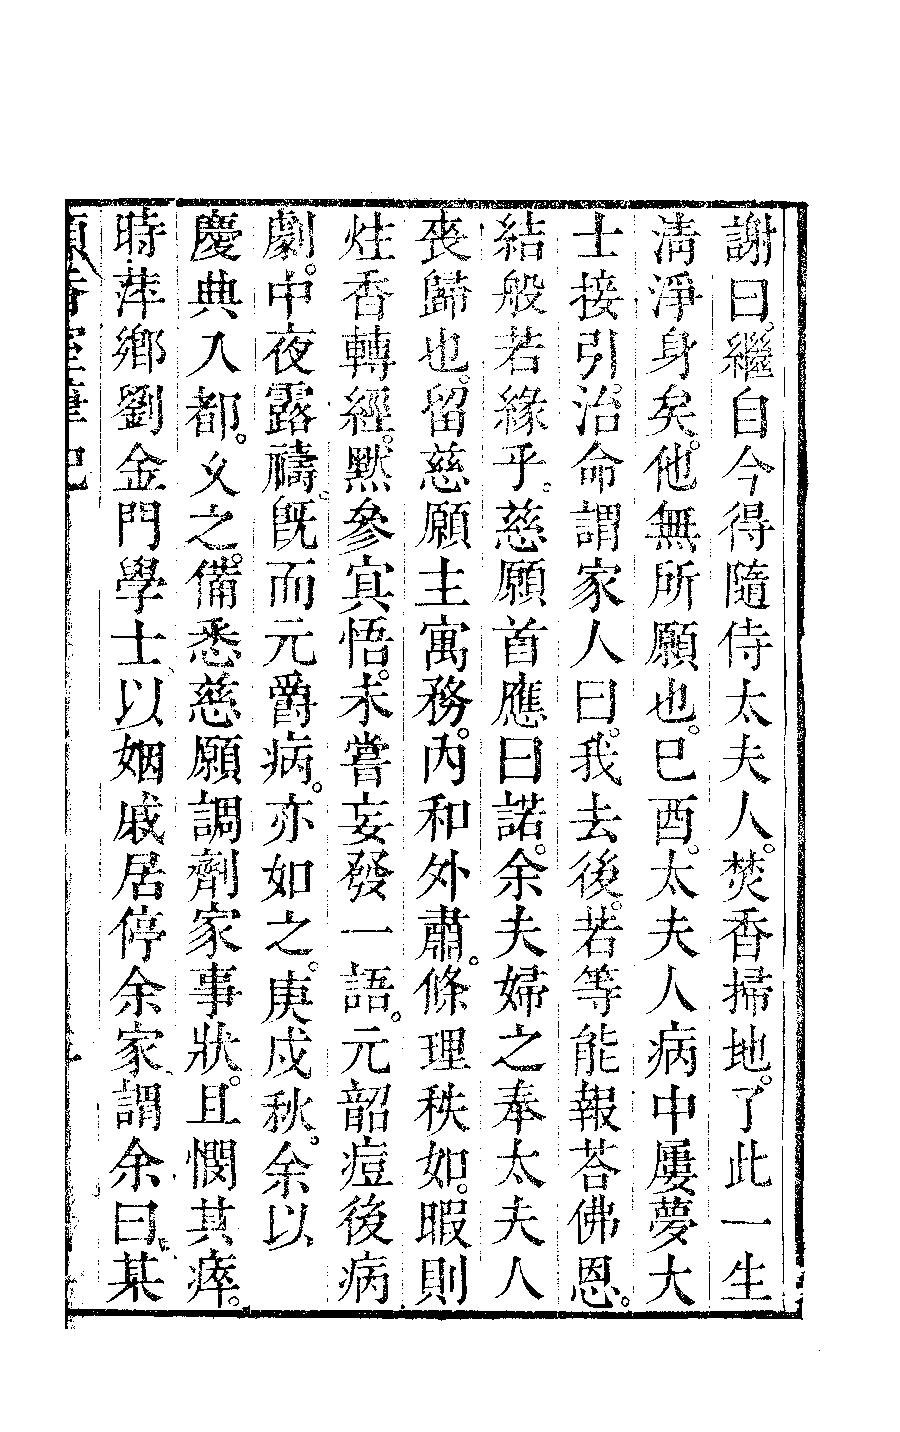 謝曰。繼自今得隨侍太夫人。焚香掃地。了此一生
清淨身矣。他無所願也。巳酉。太夫人病中屢夢大
士接引。治命謂家人曰。我去後。若等能報荅佛恩。
結般若緣乎。慈願首應曰諾。余夫婦之奉太夫人
喪歸也。留慈願主寓務。內和外肅。條理秩如。暇則
炷香轉經。默參寘悟。未嘗妄發一語。元韶痘後病
劇。中夜露禱。旣而元爵病。亦如之。庚戍秋。余以
慶典入都。攵之。備悉慈願調劑家事狀。且憫其瘁。
時萍鄉劉金門學士、以姻戚居停余家、謂余曰、某
頂香室筆記